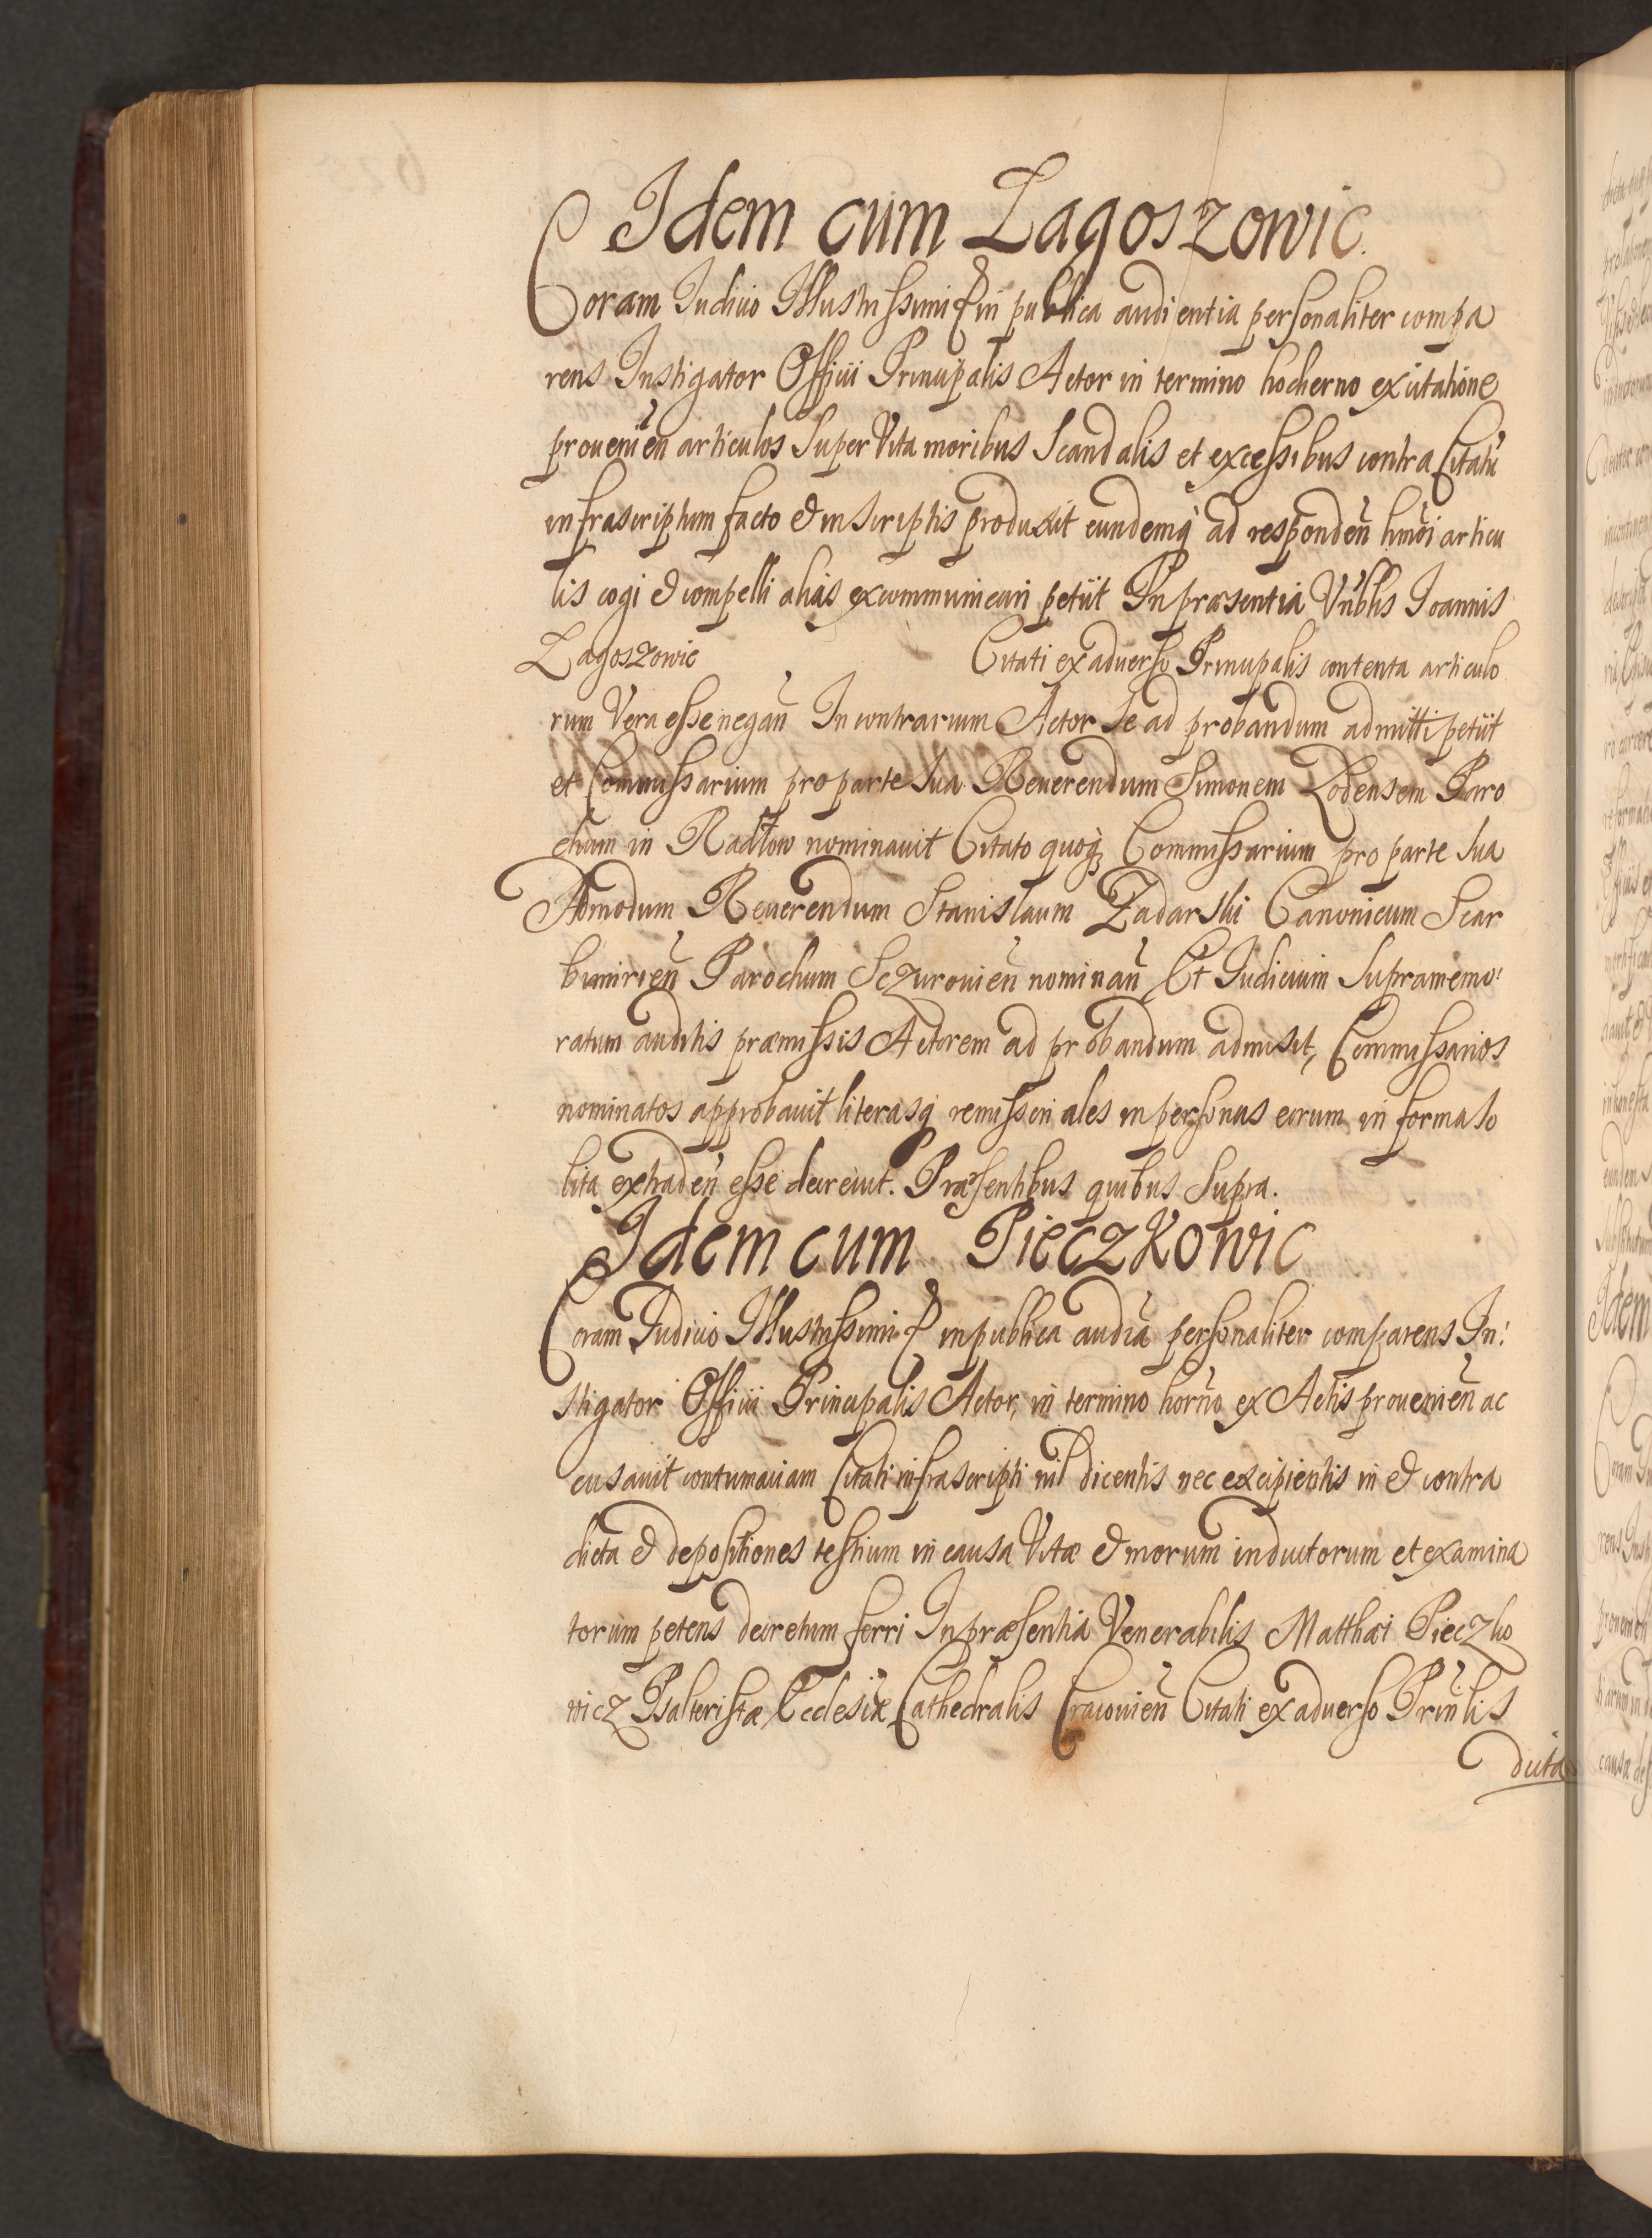 Idem cum Lagoszowic.
Coram Iudicio Illustrissimi & in publica audientia personaliter compa
rens Instigator Officii Principalis Actor in termino hodierno ex citatione
provenien̄ articulos super Vita moribus Scandalis et excessibus contra Citatū
infrascriptum facto & in scriptis produxit eundemq̀ ad responden̄ hmōi articu
lis cogi & compelli alias excommunicari petiit In præsentia Vnblis Ioannis
Lagoszowic Citati ex adverso Principalis contenta articulo
rum Vera esse negan̄ In contrarium Actor se ad probandum admitti petiit
et Commissarium pro parte sua Reverendum Simonem Lodensem Paro
chum in Radłow nominavit Citato quoq̀ Commissarium pro parte sua
Admodum Reverendum Stanislaum Zadarski Canonicum Scar
bimirien̄ Parochum Sczurovien̄ nominan̄ Et Iudicium supramemo
ratum auditis præmissis Actorem ad probandum admisit, Commissarios
nominatos approbavit literasq̀ remissoriales in personas eorum in forma so
lita extraden̄ esse decrevit. Præsentibus quibus supra.
Idem cum Pieczkowic
Coram Iudicio Illustrissimi & in publica audiā personaliter comparens In
stigator Officii Principalis Actor, in termino horño ex Actis provenien̄ ac
cusavit contumaciam Citati infrascripti nil dicentis nec excipientis in & contra
dicta & depositiones testium in causa Vitæ & morum inductorum et examina
torum petens decretum ferri In præsentia Venerabilis Matthæi Pieczko
wicz Psalteristæ Ecclesiæ Cathedralis Cracovien̄ Citati ex adverso Prin̄lis
dicta